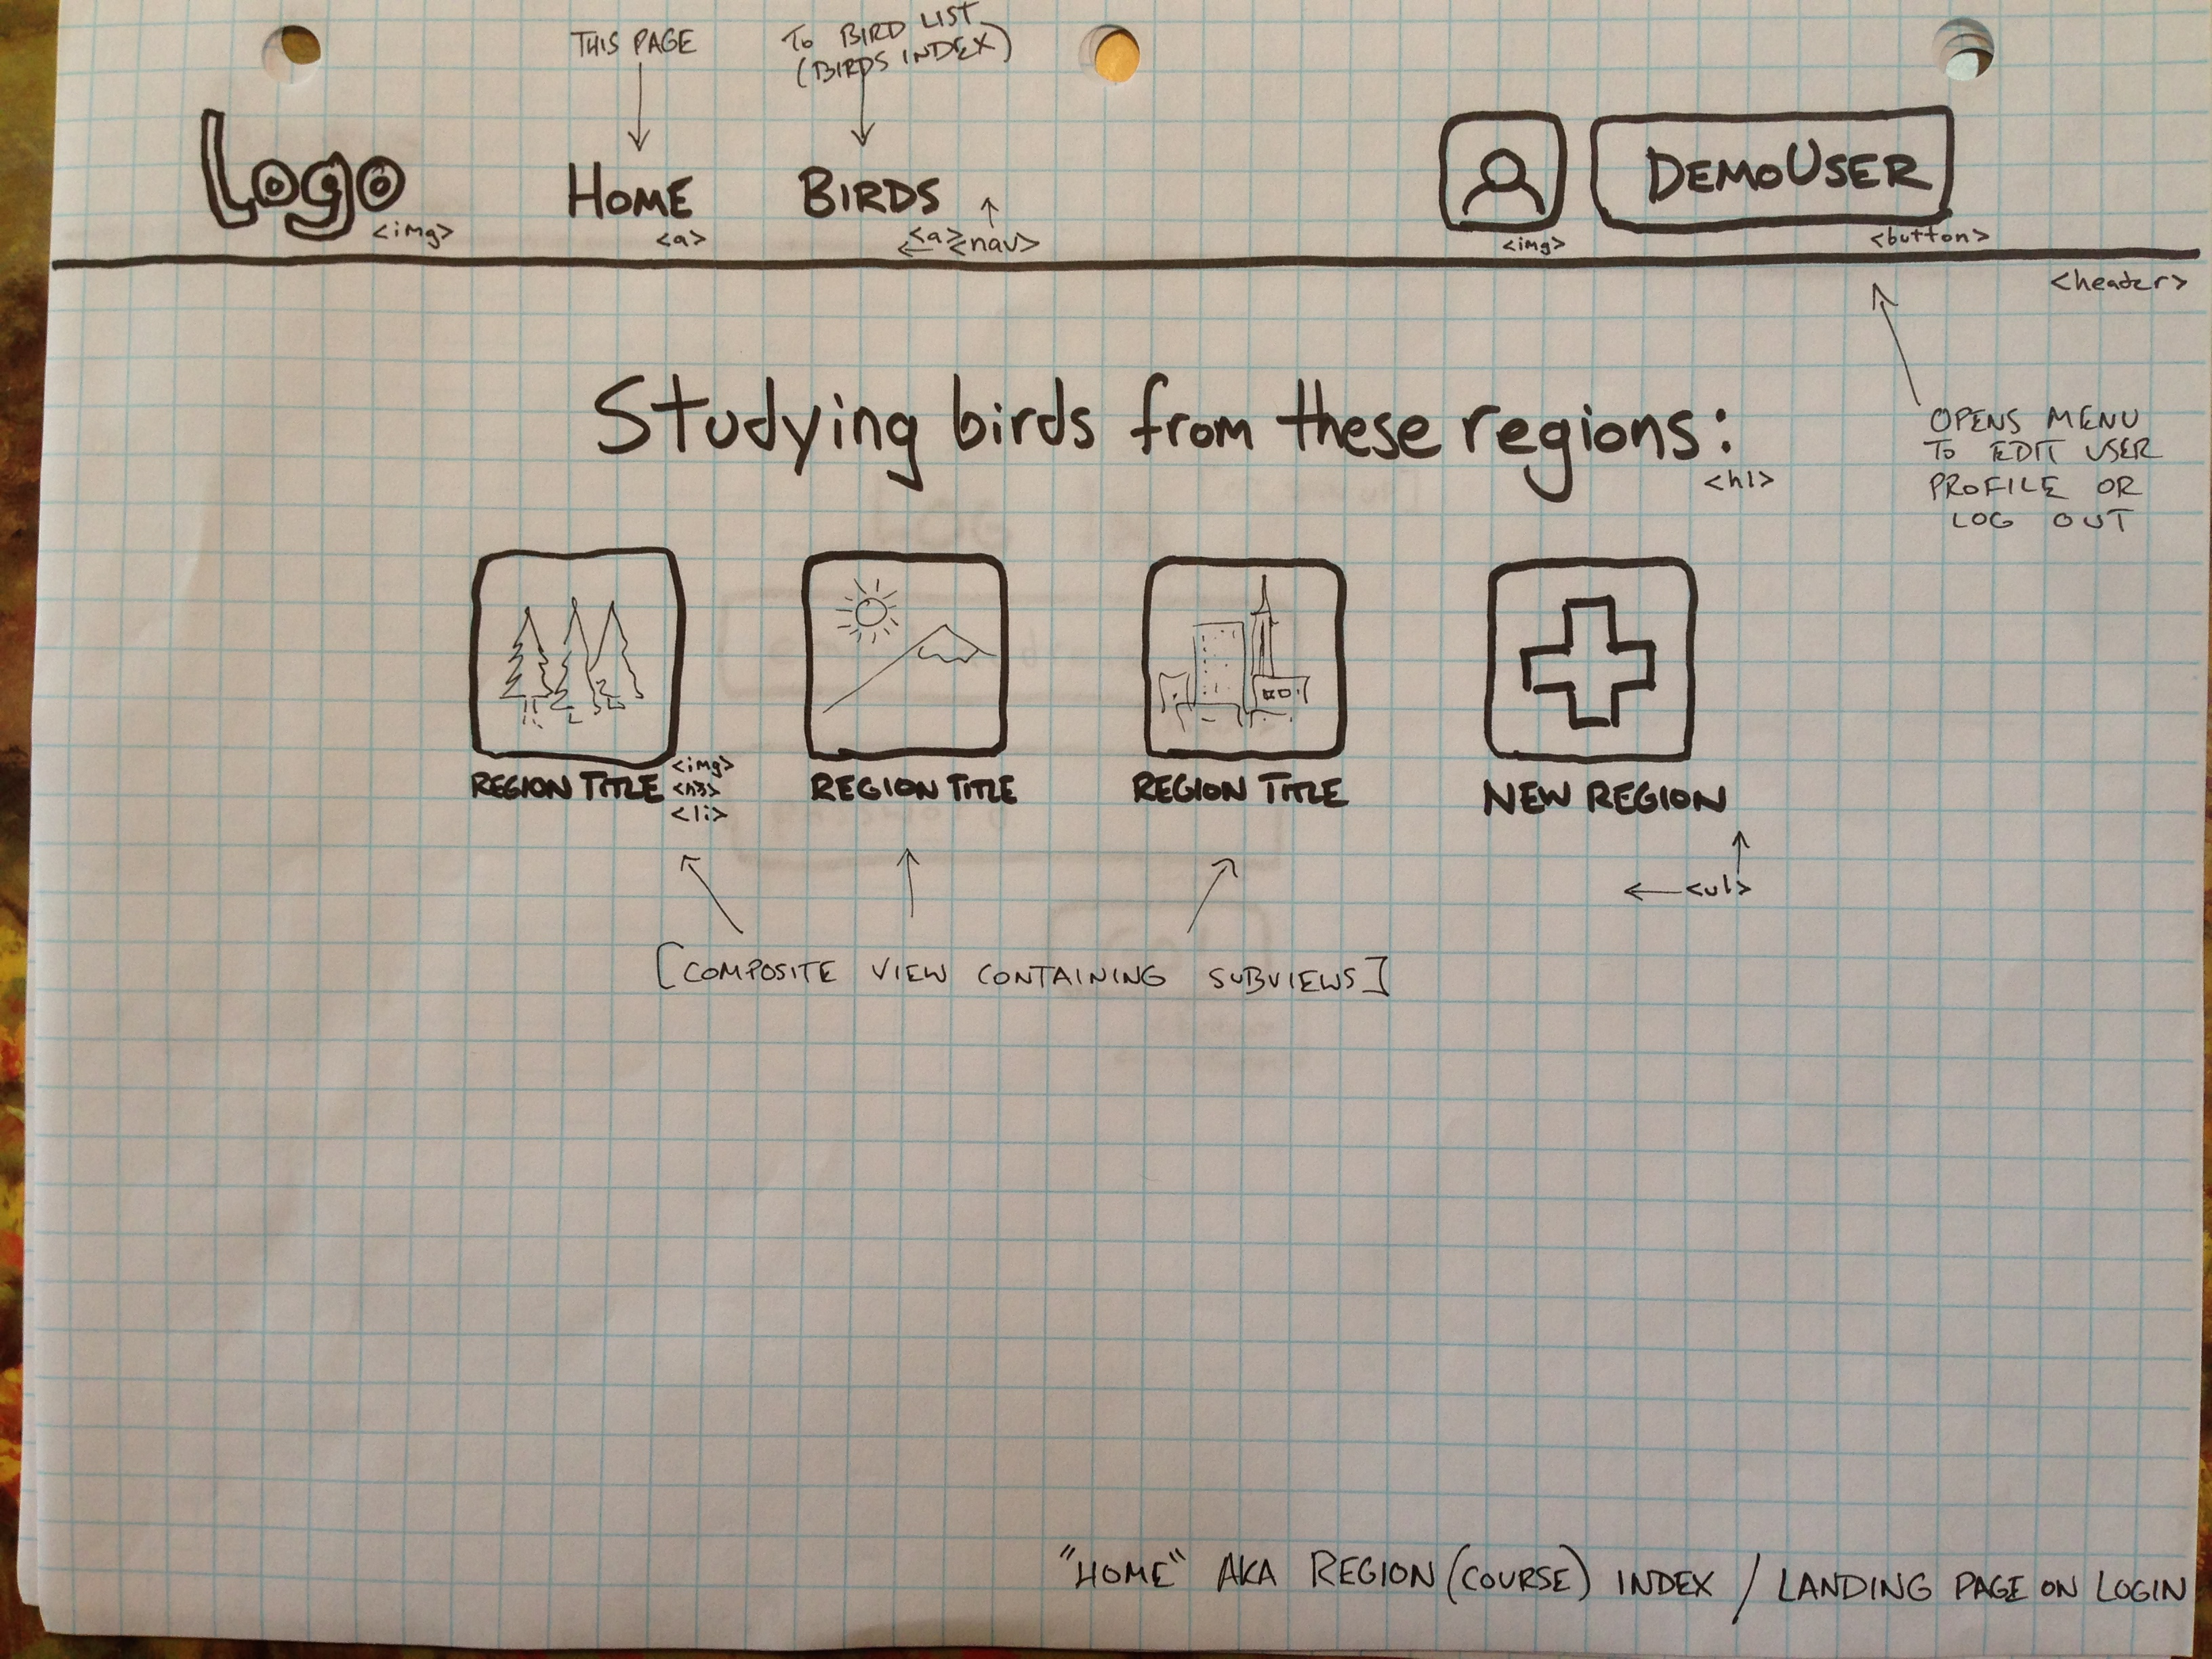 THIS PAGE
TO BIRD LIST
(BIRDS INDEX)
Logo
<img>
HOME
<a>
BIRDS
<a>
<nav>
<img>
DEMOUSER
<button>
<header>
OPENS MENU
TO EDIT USER
PROFILE OR
LOG OUT
Studying birds from these regions:
<h1>
<img>
REGION TITLE <h3>
<li>
REGION TITLE
REGION TITLE
NEW REGION
<ul>
[COMPOSITE VIEW CONTAINING SUBVIEWS]
"HOME" AKA REGION (COURSE) INDEX / LANDING PAGE ON LOGIN